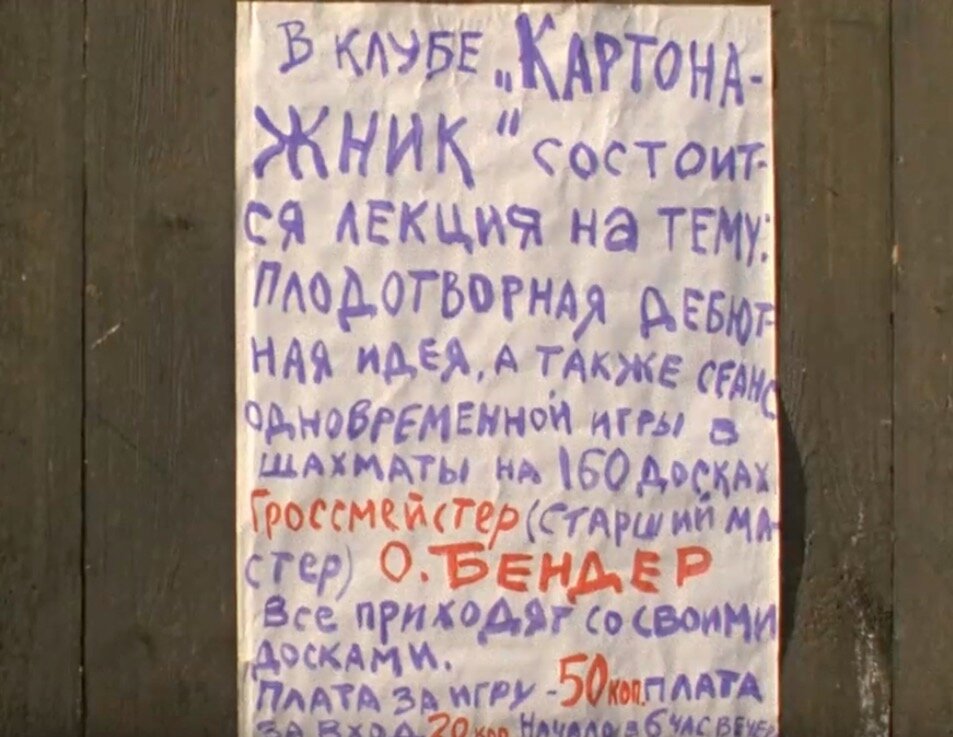 В КЛУБЕ „КАРТОНА-
ЖНИК" СОСТОИТ-
СЯ ЛЕКЦИЯ НА ТЕМУ:
ПЛОДОТВОРНАЯ ДЕБЮТ-
НАЯ ИДЕЯ, А ТАКЖЕ СЕАНС
ОДНОВРЕМЕННОЙ ИГРЫ В
ШАХМАТЫ НА 160 ДОСКАХ
ГРОССМЕЙСТЕР (СТАРШИЙ МА-
СТЕР) О. БЕНДЕР
ВСЕ ПРИХОДЯТ СО СВОИМИ
ДОСКАМИ.
ПЛАТА ЗА ИГРУ - 50 КОП. ПЛАТА
ЗА ВХОД 20 КОП. НАЧАЛО В 6 ЧАС ВЕЧЕР